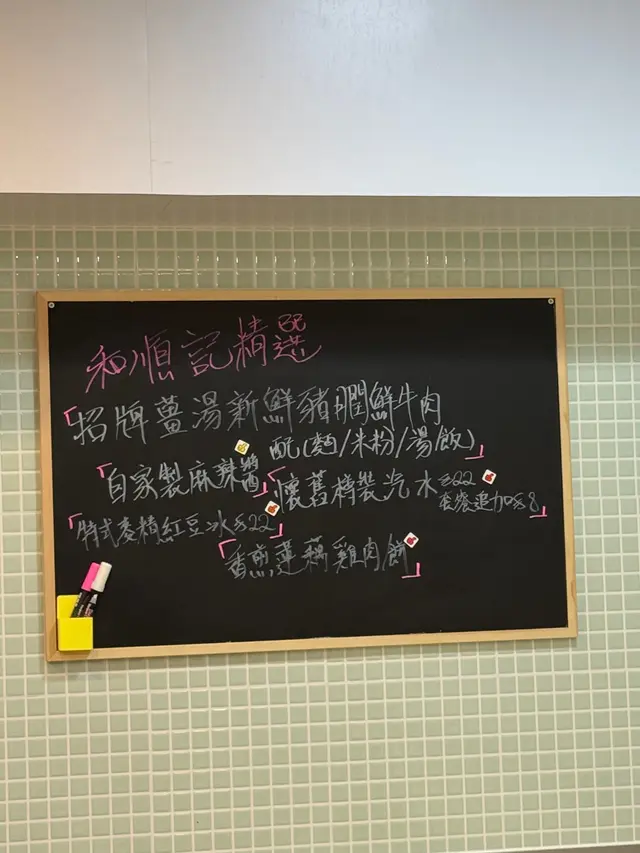 和順記精選
「招牌薑湯新鮮豬膶鮮牛肉
配(麵/米粉/湯飯)」
「自家製麻辣醬」
「懷舊樽裝汽水$22
套餐追加$8」
「特式麥精紅豆冰$22」
「香煎蓮藕雞肉餅」